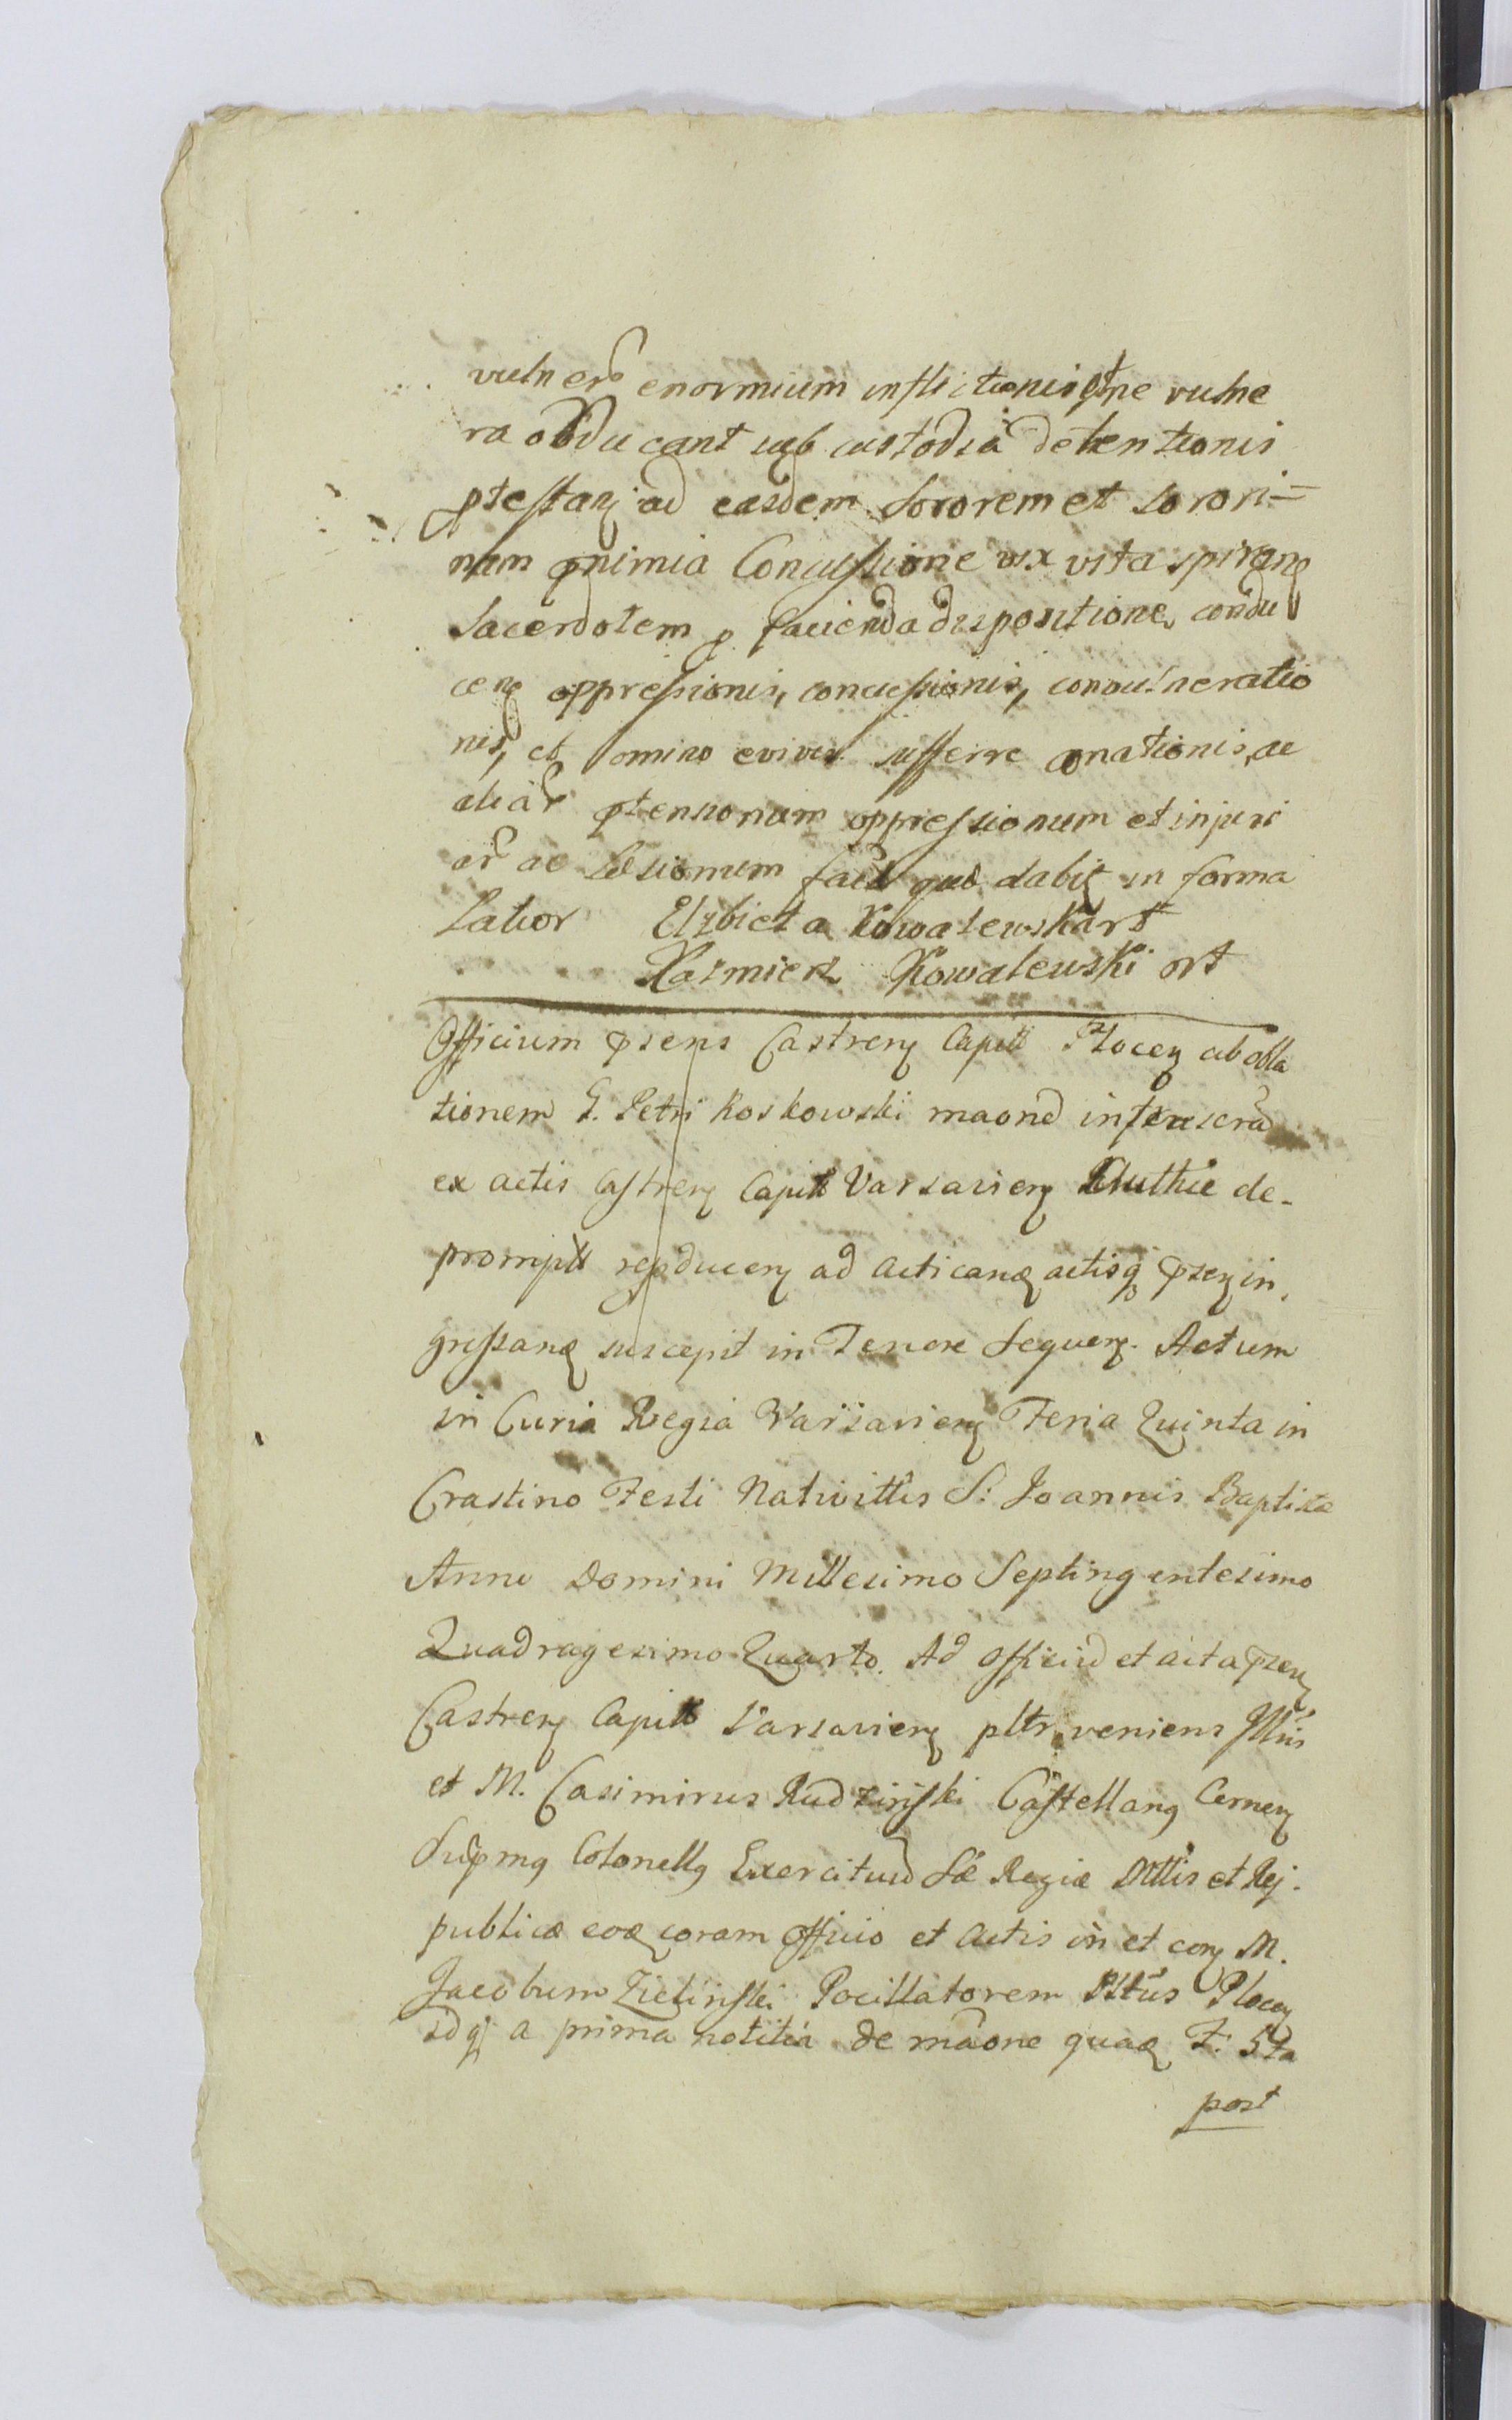 vulner enormium inflictionis ne vulne
ra obducant sub custodia detentionis
ptestanj ad easdem Sororem et sorori=
nam pnimia Concussione vix vita spirans
Sacerdotem p facienda dispositione condu
cenz oppressionis, concussionis, convulneratio
nis, et omino sufferre conationis, ac
aliar ptensionum oppressionum et injuri
ar ac Læsionum quod dabit in forma
Latior Elzbieta Kowalewska rt
Kazmierz Kowalewski ort
Officium psens Castrenz Capitt Plocenz ab obla
tionem G. Petri Koskowski maond infrascrad
ex actis Castrenz Capitt Varsavienz de-
prompt repducenz ad acticandz actisqz psenz in
gressandz suscepit in Tenore Sequenz. Actum
in Curia Regia Varsavienz Feria Quinta in
Crastino Festi Nativittis S: Joannis Baptistæ
Anno Domini Millesimo Septingentesimo
Quadragesimo Quarto. Ad Officiu et acta psenz
Castrenz Capitt Varsavienz pltr veniens Jllris
et M. Casimirus Rudzinski Castellanq Cernenz
Supmq Colonellq Exercituu Sæ Regiæ Mttis et Rej-
publicæ eoqz coram officio et actis in et conz M.
Jacobum Zielinski Pocillatorem Plttus Plocenz
idqz a prima notitia de maone quaqz F: 5ta
post